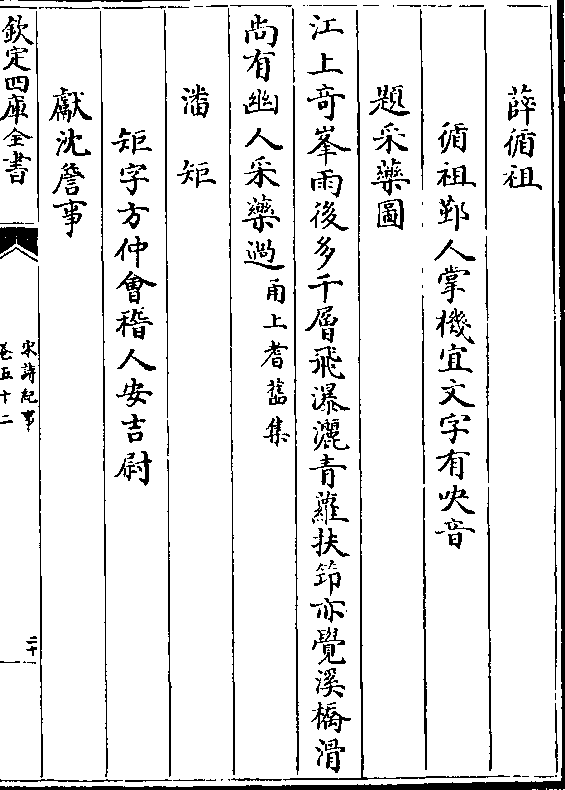 薛循祖
循祖鄞人掌機宜文字有央音
題采藥圖
江上奇峯雨後多千層飛瀑灑青蘿扶笻亦覺溪橋滑
尚有幽人采藥過甬上耆舊集
潘矩
矩字方仲會稽人安吉尉
獻沈詹事
欽定四庫全書
宋詩紀事
卷五十二
二十